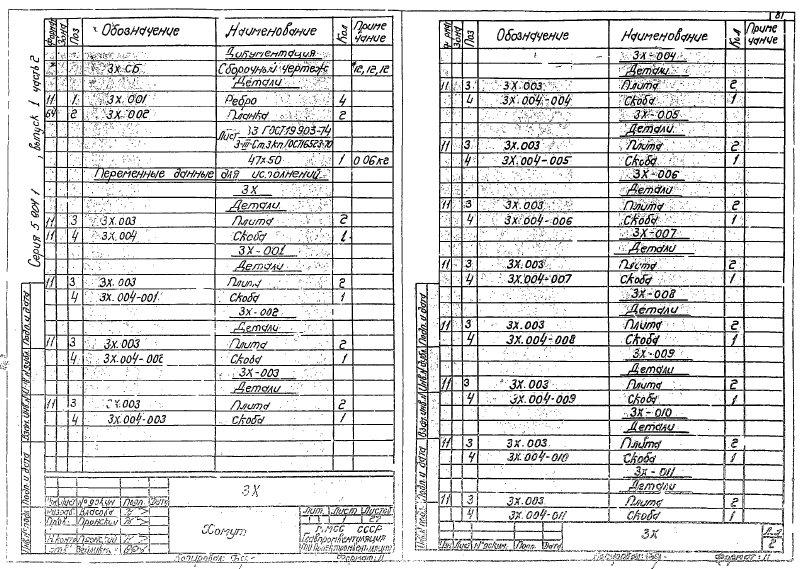 Серия 5.904-1, выпуск 1 часть 2
Поз Обозначение Наименование Кол Приме чание
Документация
3Х СБ Сборочный чертеж *12,12,12
Детали
11 1 3Х.001 Ребро 4
64 2 3Х.002 Планка 2
Лист
47×50 1 0.06кг
Переменные данные для исполнений
3Х
Детали
11 3 3Х.003 Плита 2
11 4 3Х.004 Скоба 1
3Х-001
Детали
11 3 3Х.003 Плита 2
4 3Х.004-001 Скоба 1
3Х-002
Детали
11 3 3Х.003 Плита 2
4 3Х.004-002 Скоба 1
3Х-003
Детали
11 3 3Х.003 Плита 2
4 3Х.004-003 Скоба 1
3Х
Хомут
Лит. Лист Листов
1
ГМСС СССР
Копировал:
Формат: 11
81
Зона Поз Обозначение Наименование Кол Приме чание
3Х-004
Детали
11 3 3Х.003 Плита 2
4 3Х.004-004 Скоба 1
3Х-005
Детали
11 3 3Х.003 Плита 2
4 3Х.004-005 Скоба 1
3Х-006
Детали
11 3 3Х.003 Плита 2
4 3Х.004-006 Скоба 1
3Х-007
Детали
11 3 3Х.003 Плита 2
4 3Х.004-007 Скоба 1
3Х-008
Детали
11 3 3Х.003 Плита 2
4 3Х.004-008 Скоба 1
3Х-009
Детали
11 3 3Х.003 Плита 2
4 3Х.004-009 Скоба 1
3Х-010
Детали
11 3 3Х.003 Плита 2
4 3Х.004-010 Скоба 1
3Х-011
Детали
11 3 3Х.003 Плита 2
4 3Х.004-011 Скоба 1
3Х
2
Изм. Лист № докум. Подп. Дата
Копировал:
Формат: 11